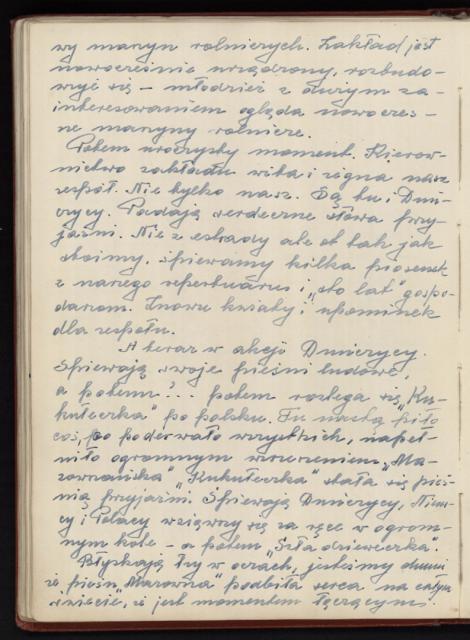 wy maszyn rolniczych. Zakład jest
nowocześnie urządzony, rozbudo-
wuje się – młodzież z dużym za-
interesowaniem ogląda nowoczes-
ne maszyny rolnicze.
Potem uroczysty moment. Kierow-
nictwo zakładu wita i żegna nasz
zespół. Nie tylko nasz. Są tu i Duń-
czycy. Padają serdeczne słowa przy-
jaźni. Nie z estrady ale ot tak jak
stoimy, śpiewamy kilka piosenek
z naszego repertuaru i „sto lat" gospo-
darzom. Znowu kwiaty i upominek
dla zespołu.
A teraz w akcji Duńczycy.
Śpiewają swoje pieśni ludowe,
a potem?... potem rozlega się „Ku-
kułeczka" po polsku. Tu nastą piło
coś, co poderwało wszystkich, napeł-
niło ogromnym wzruszeniem „Ma-
zowszańska" „Kukułeczka" stała się pieś-
nią przyjaźni. Śpiewają Duńczycy, Niem-
cy i Polacy wziąwszy się za ręce w ogrom-
nym kole – a potem „Szła dzieweczka".
Błyskają łzy w oczach, jesteśmy dumni
że pieśń „Mazowsza" podbiła serca na całym
świecie, że jest momentem łączącym!